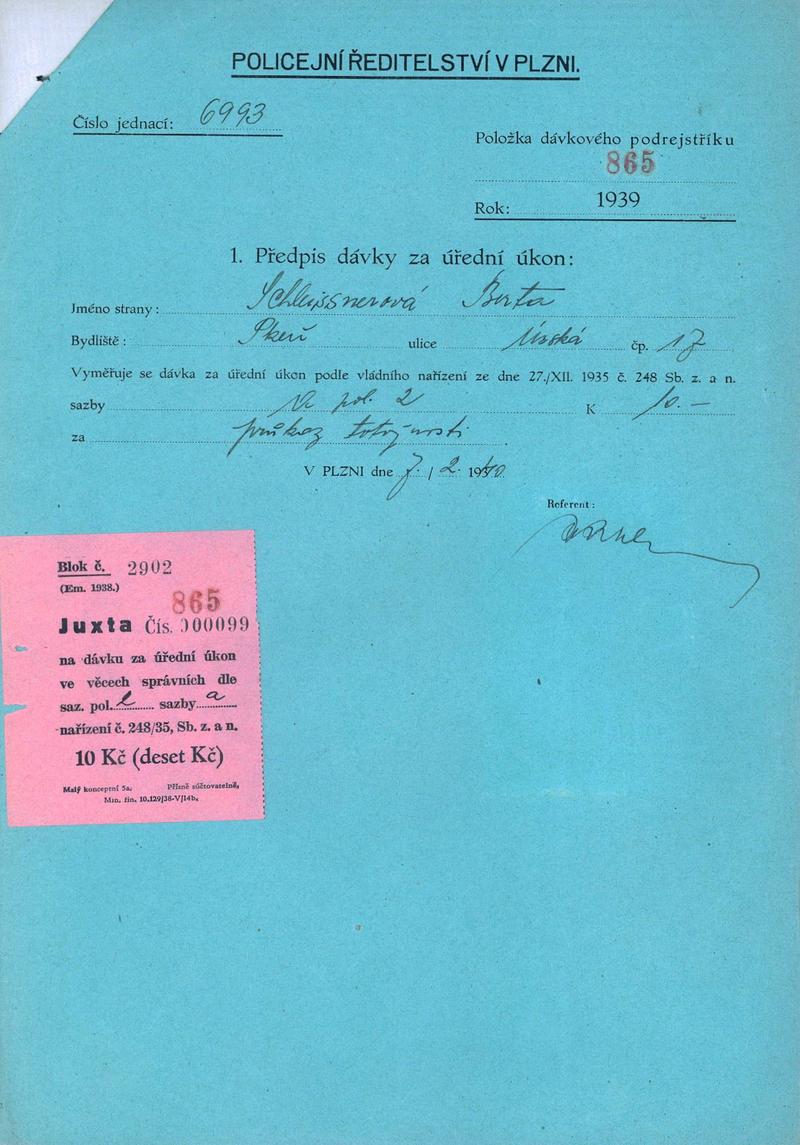 POLICEJNÍ ŘEDITELSTVÍ V PLZNI.
Číslo jednací: 6993
Položka dávkového podrejstříku
865
Rok: 1939
1. Předpis dávky za úřední úkon:
Jméno strany: Schleissnerová Berta
Bydliště: ulice čp. 17
Vyměřuje se dávka za úřední úkon podle vládního nařízení ze dne 27./XII. 1935 č. 248 Sb. z. a n.
sazby pol. 2 K 10.—
za průkaz totožnosti
V PLZNI dne 7. / 2. 1940
Referent:
Blok č. 2902
(Em. 1938.)
865
Juxta Čís. 000099
na dávku za úřední úkon
ve věcech správních dle
saz. pol. 2 sazby a
nařízení č. 248/35, Sb. z. a n.
10 Kč (deset Kč)
Malý konceptní 5a. Přísně súčtovatelné.
Min. fin. 10.129/38-V/14b.